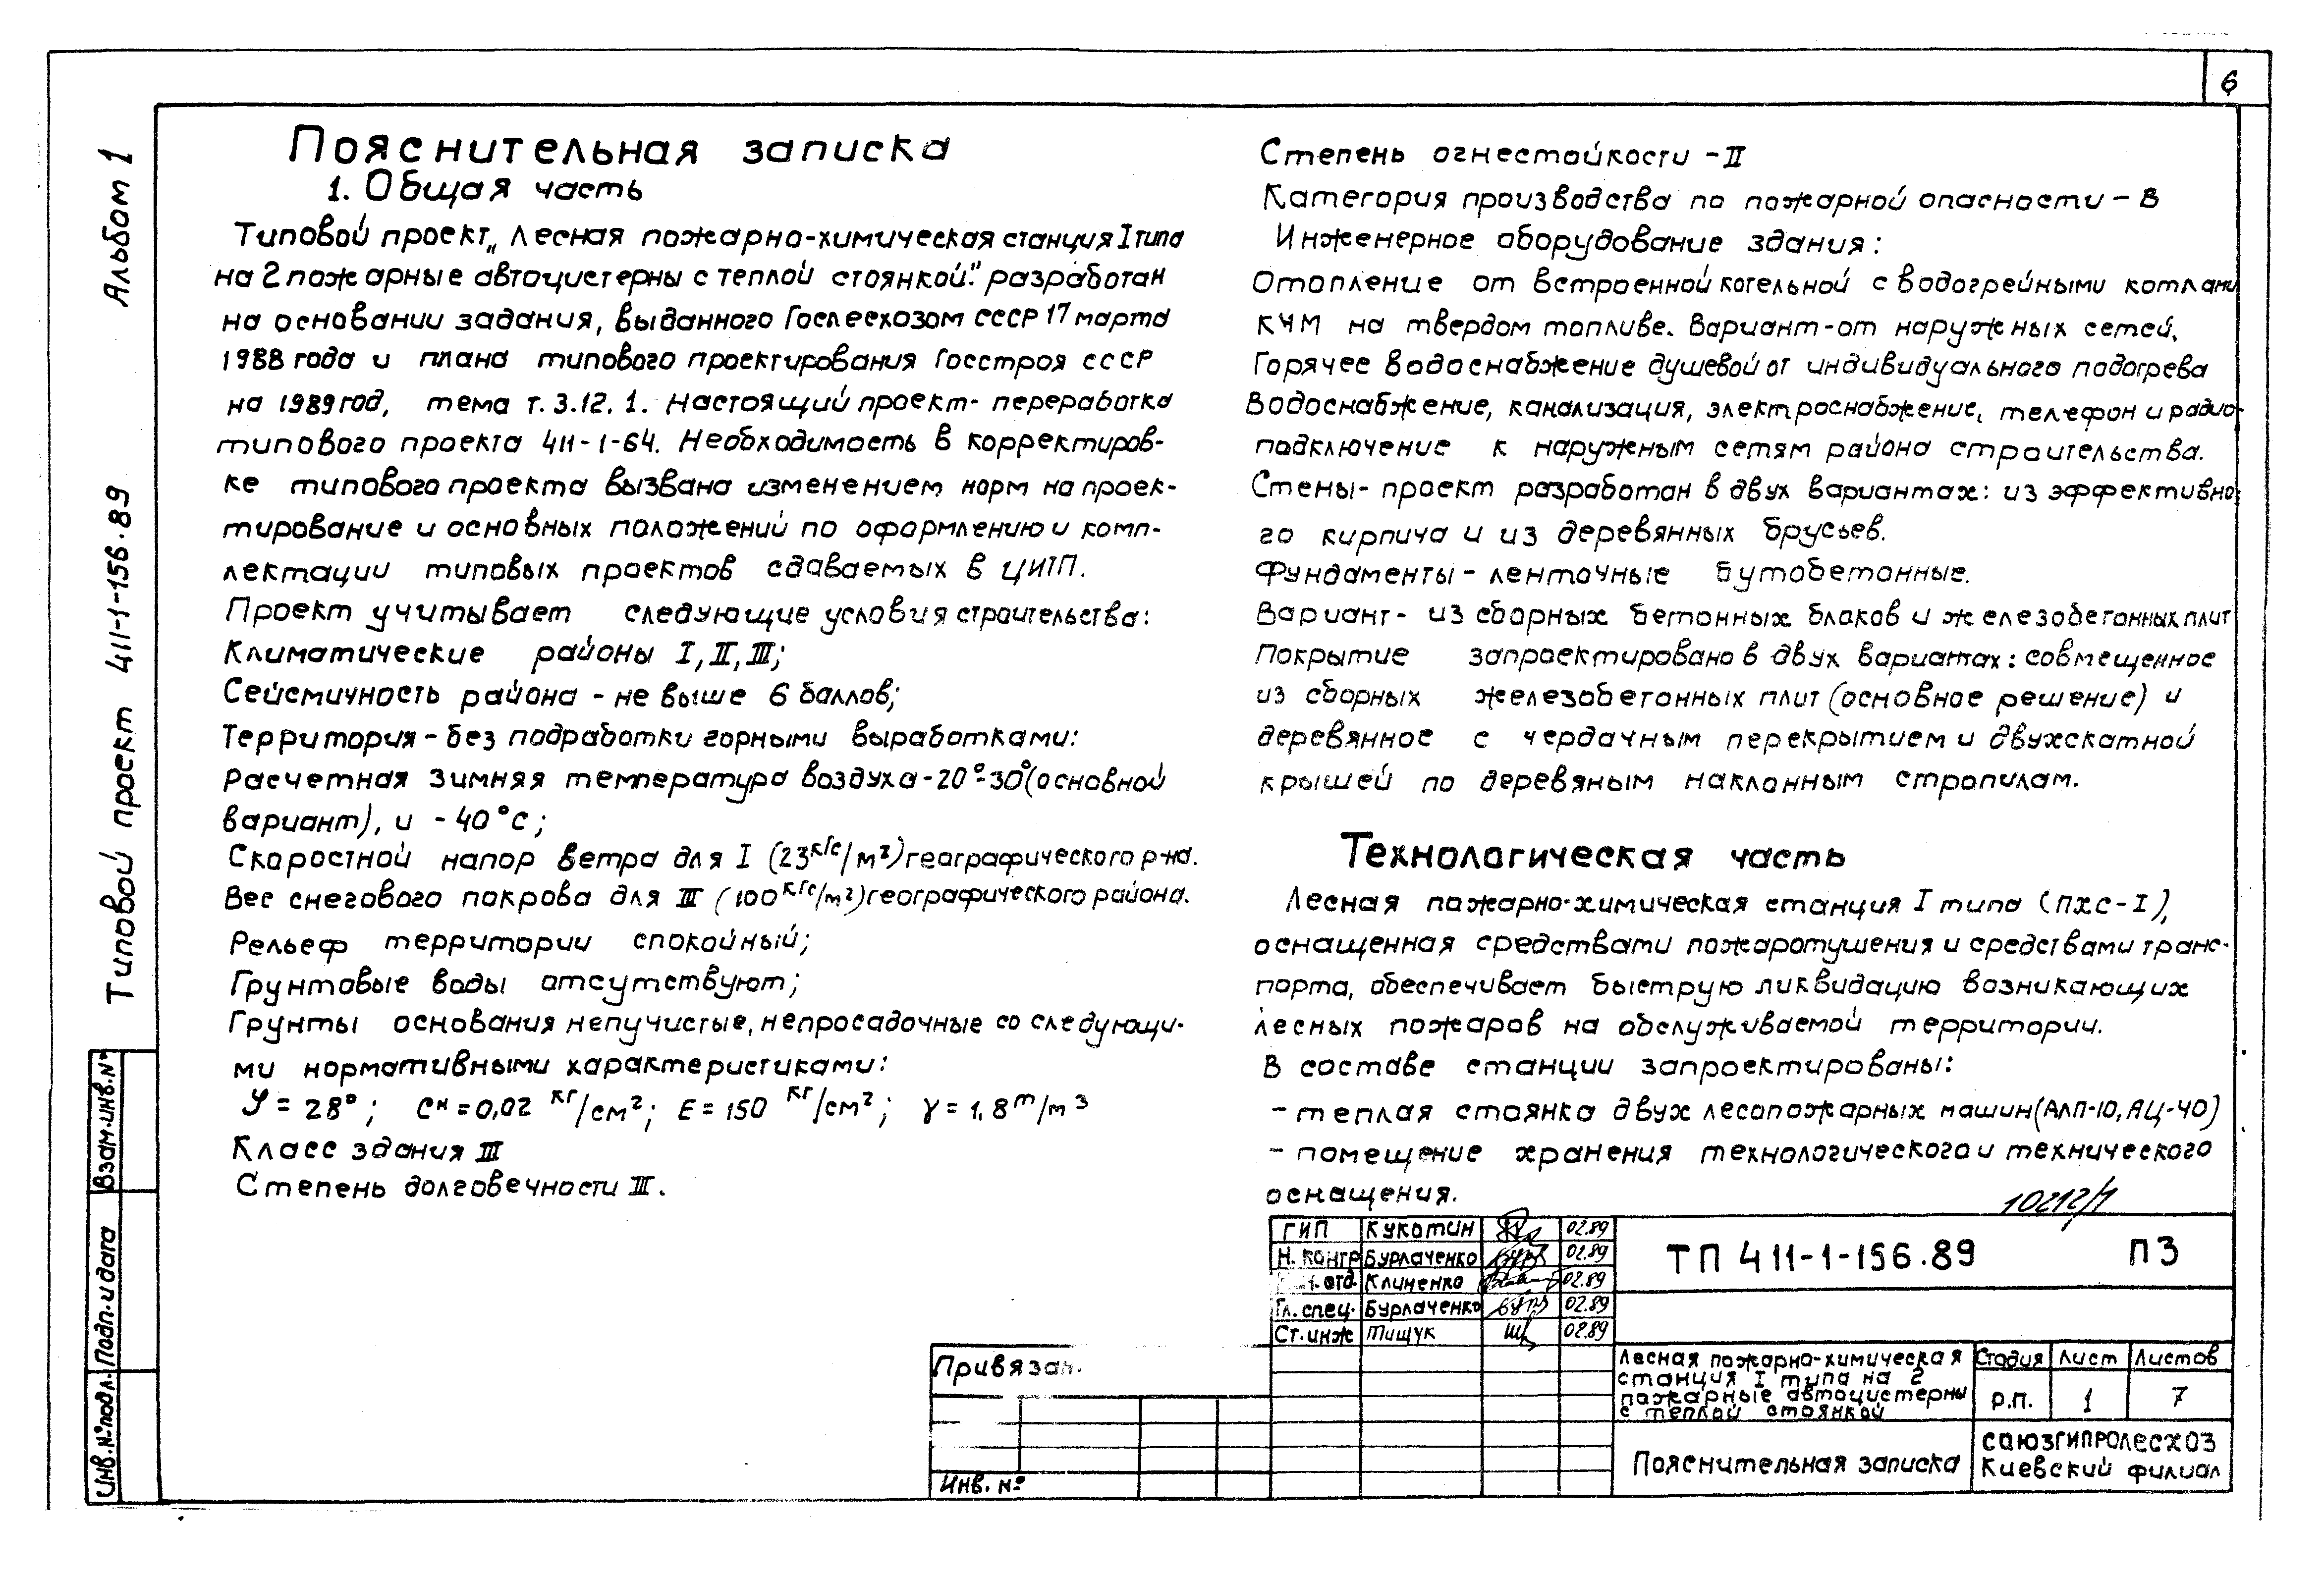 6
Альбом 1
Типовой проект 411-1-156.89
Пояснительная записка
1. Общая часть
Типовой проект „Лесная пожарно-химическая станция I типа
на 2 пожарные автоцистерны с теплой стоянкой." разработан
на основании задания, выданного Гослесхозом СССР 17 марта
1988 года и плана типового проектирования Госстроя СССР
на 1989 год, тема т. 3.12. 1. Настоящий проект- переработка
типового проекта 411-1-64. Необходимость в корректиров-
ке типового проекта вызвана изменением норм на проек-
тирование и основных положений по оформлению и комп-
лектации типовых проектов сдаваемых в ЦИТП.
Проект учитывает следующие условия строительства:
Климатические районы I, II, III;
Сейсмичность района - не выше 6 баллов;
Территория - без подработки горными выработками:
Расчетная зимняя температура воздуха -20°-30° (основной
вариант), и -40°С;
Скоростной напор ветра для I (23 кгс/м²) географического р-на.
Вес снегового покрова для III (100 кгс/м²) географического района.
Рельеф территории спокойный;
Грунтовые воды отсутствуют;
Грунты основания непучистые, непросадочные со следующи-
ми нормативными характеристиками:
φ = 28°; Cн = 0,02 кг/см²; E = 150 кг/см²; γ = 1,8 т/м³
Класс здания III
Степень долговечности III.
Степень огнестойкости - II
Категория производства по пожарной опасности - В
Инженерное оборудование здания:
Отопление от встроенной котельной с водогрейными котлами
КЧМ на твердом топливе. Вариант - от наружных сетей.
Горячее водоснабжение душевой от индивидуального подогрева
Водоснабжение, канализация, электроснабжение, телефон и радио-
подключение к наружным сетям района строительства.
Стены - проект разработан в двух вариантах: из эффективно-
го кирпича и из деревянных брусьев.
Фундаменты - ленточные бутобетонные.
Вариант - из сборных бетонных блоков и железобетонных плит
Покрытие запроектировано в двух вариантах: совмещенное
из сборных железобетонных плит (основное решение) и
деревянное с чердачным перекрытием и двухскатной
крышей по деревяным наклонным стропилам.
Технологическая часть
Лесная пожарно-химическая станция I типа (ПХС-I),
оснащенная средствами пожаротушения и средствами транс-
порта, обеспечивает быструю ликвидацию возникающих
лесных пожаров на обслуживаемой территории.
В составе станции запроектированы:
- теплая стоянка двух лесопожарных машин (АЛП-10, АЦ-40)
- помещение хранения технологического и технического
оснащения.
10212/1
ГИП Кукотин 02.89
Н. контр Бурлаченко 02.89
отд. Клименко 02.89
Гл. спец. Бурлаченко 02.89
Ст. инж Тищук 02.89
ТП 411-1-156.89 ПЗ
Привязан.
Инв. №
Лесная пожарно-химическая
станция I типа на 2
пожарные автоцистерны
с теплой стоянкой
Стадия Лист Листов
Р.П. 1 7
Пояснительная записка
СОЮЗГИПРОЛЕСХОЗ
Киевский филиал
Взам. инв. №
Подп. и дата
Инв. № подл.